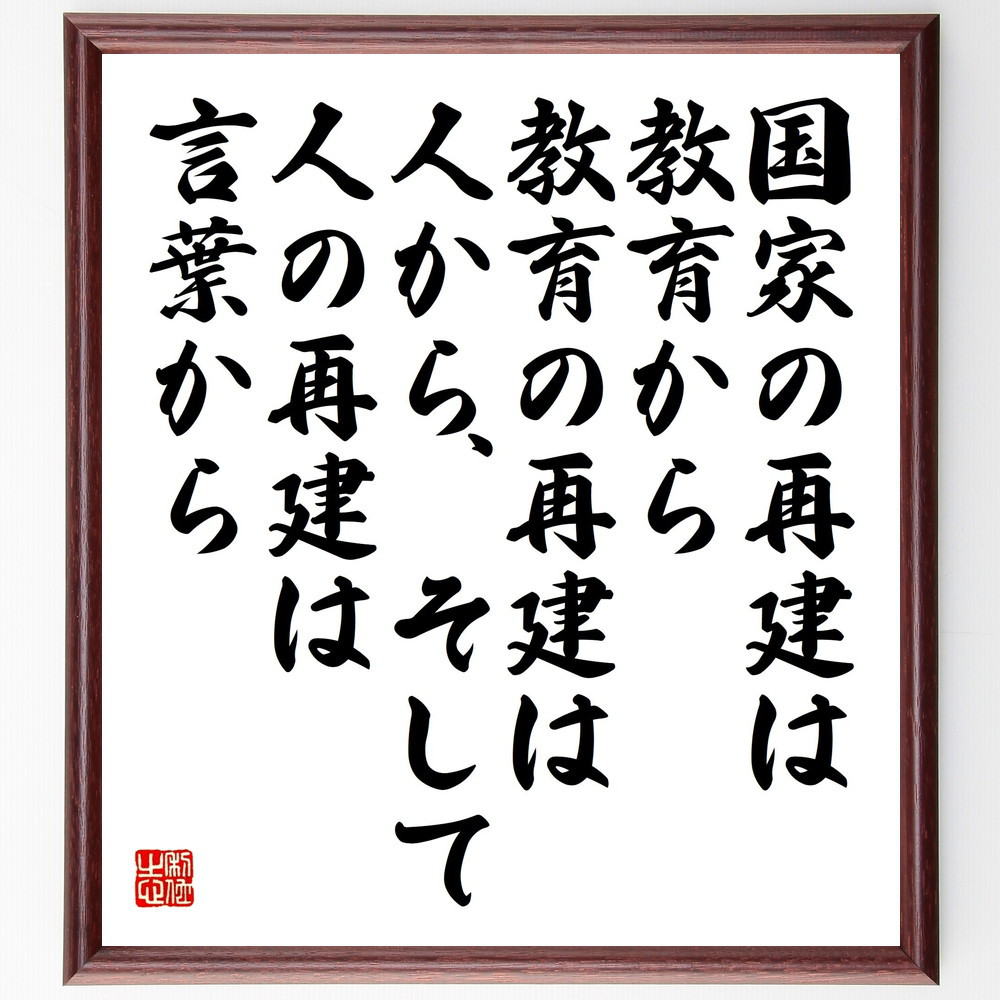 国家の再建は
教育から
教育の再建は
人から、そして
人の再建は
言葉から